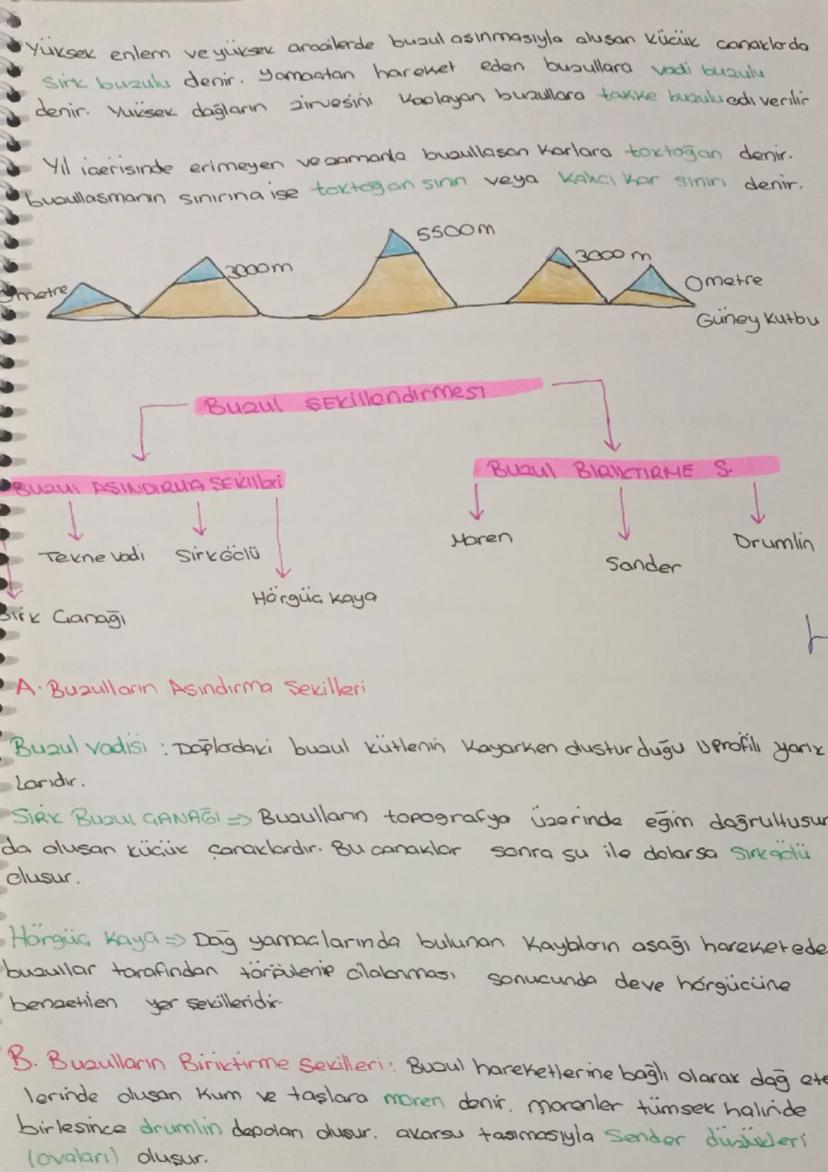 Yüksek enlem ve yüksek arazilerde buzul aşınmasıyla oluşan küçük çanaklarda
sirk buzulu denir. Yamaçtan hareket eden buzullara vadi buzulu
denir. Yüksek dağların zirvesini kaplayan buzullara takke buzulu adı verilir
Yıl içerisinde erimeyen ve zamanla buzullaşan karlara toktoğan denir.
buzullaşmanın sınırına ise toktoğan sınırı veya kalıcı kar sınırı denir.
5500m
3000m
3000 m
0metre
0metre
Güney Kutbu
Buzul ŞEKillendirmesi
Buzul AŞINDIRMA ŞEKilleri
Buzul BİRİKTİRME Ş.
Tekne Vadi
Sirk Gölü
Moren
Sander
Drumlin
Hörgüç kaya
Sirk Çanağı
A. Buzulların Aşındırma Şekilleri
Buzul vadisi : Dağlardaki buzul kütlenin kayarken oluşturduğu U profili yarık
larıdır.
SİRK BUZUL ÇANAĞI => Buzulların topografya üzerinde eğim doğrultusun
da oluşan küçük çanaklardır. Bu çanaklar sonra su ile dolarsa sirk gölü
oluşur.
Hörgüç Kaya => Dağ yamaçlarında bulunan kayaların aşağı hareket ede
buzullar tarafından törpülenip cilalanması sonucunda deve hörgücüne
benzetilen yer şekilleridir
B. Buzulların Biriktirme Şekilleri : Buzul hareketlerine bağlı olarak dağ ete
lerinde oluşan kum ve taşlara moren denir. morenler tümsek halinde
birleşince drumlin depoları oluşur. akarsu taşımasıyla Sender düzlükleri
(ovaları) oluşur.